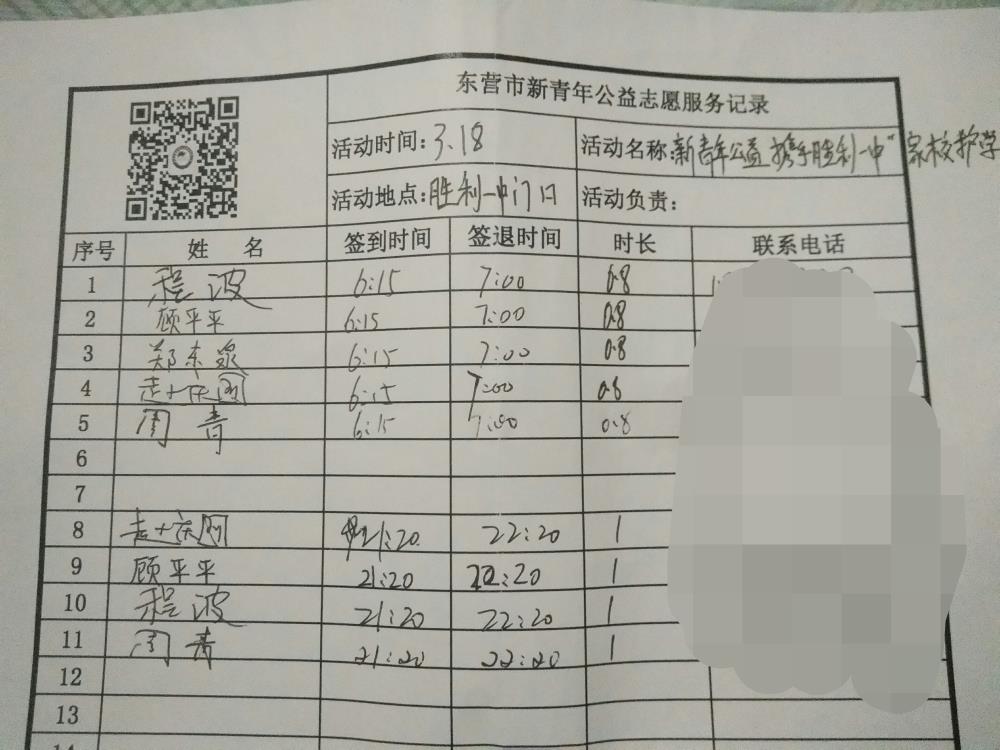 东营市新青年公益志愿服务记录
活动时间：3.18 活动名称：新青年公益携手胜利一中"家校护学
活动地点：胜利一中门口 活动负责：
序号 姓 名 签到时间 签退时间 时长 联系电话
1 程波 6:15 7:00 0.8
2 顾平平 6:15 7:00 0.8
3 郑东泉 6:15 7:00 0.8
4 6:15 7:00 0.8
5 周青 6:15 7:00 0.8
6
7
8 21:20 22:20 1
9 顾平平 21:20 22:20 1
10 程波 21:20 22:20 1
11 周青 21:20 22:20 1
12
13
14